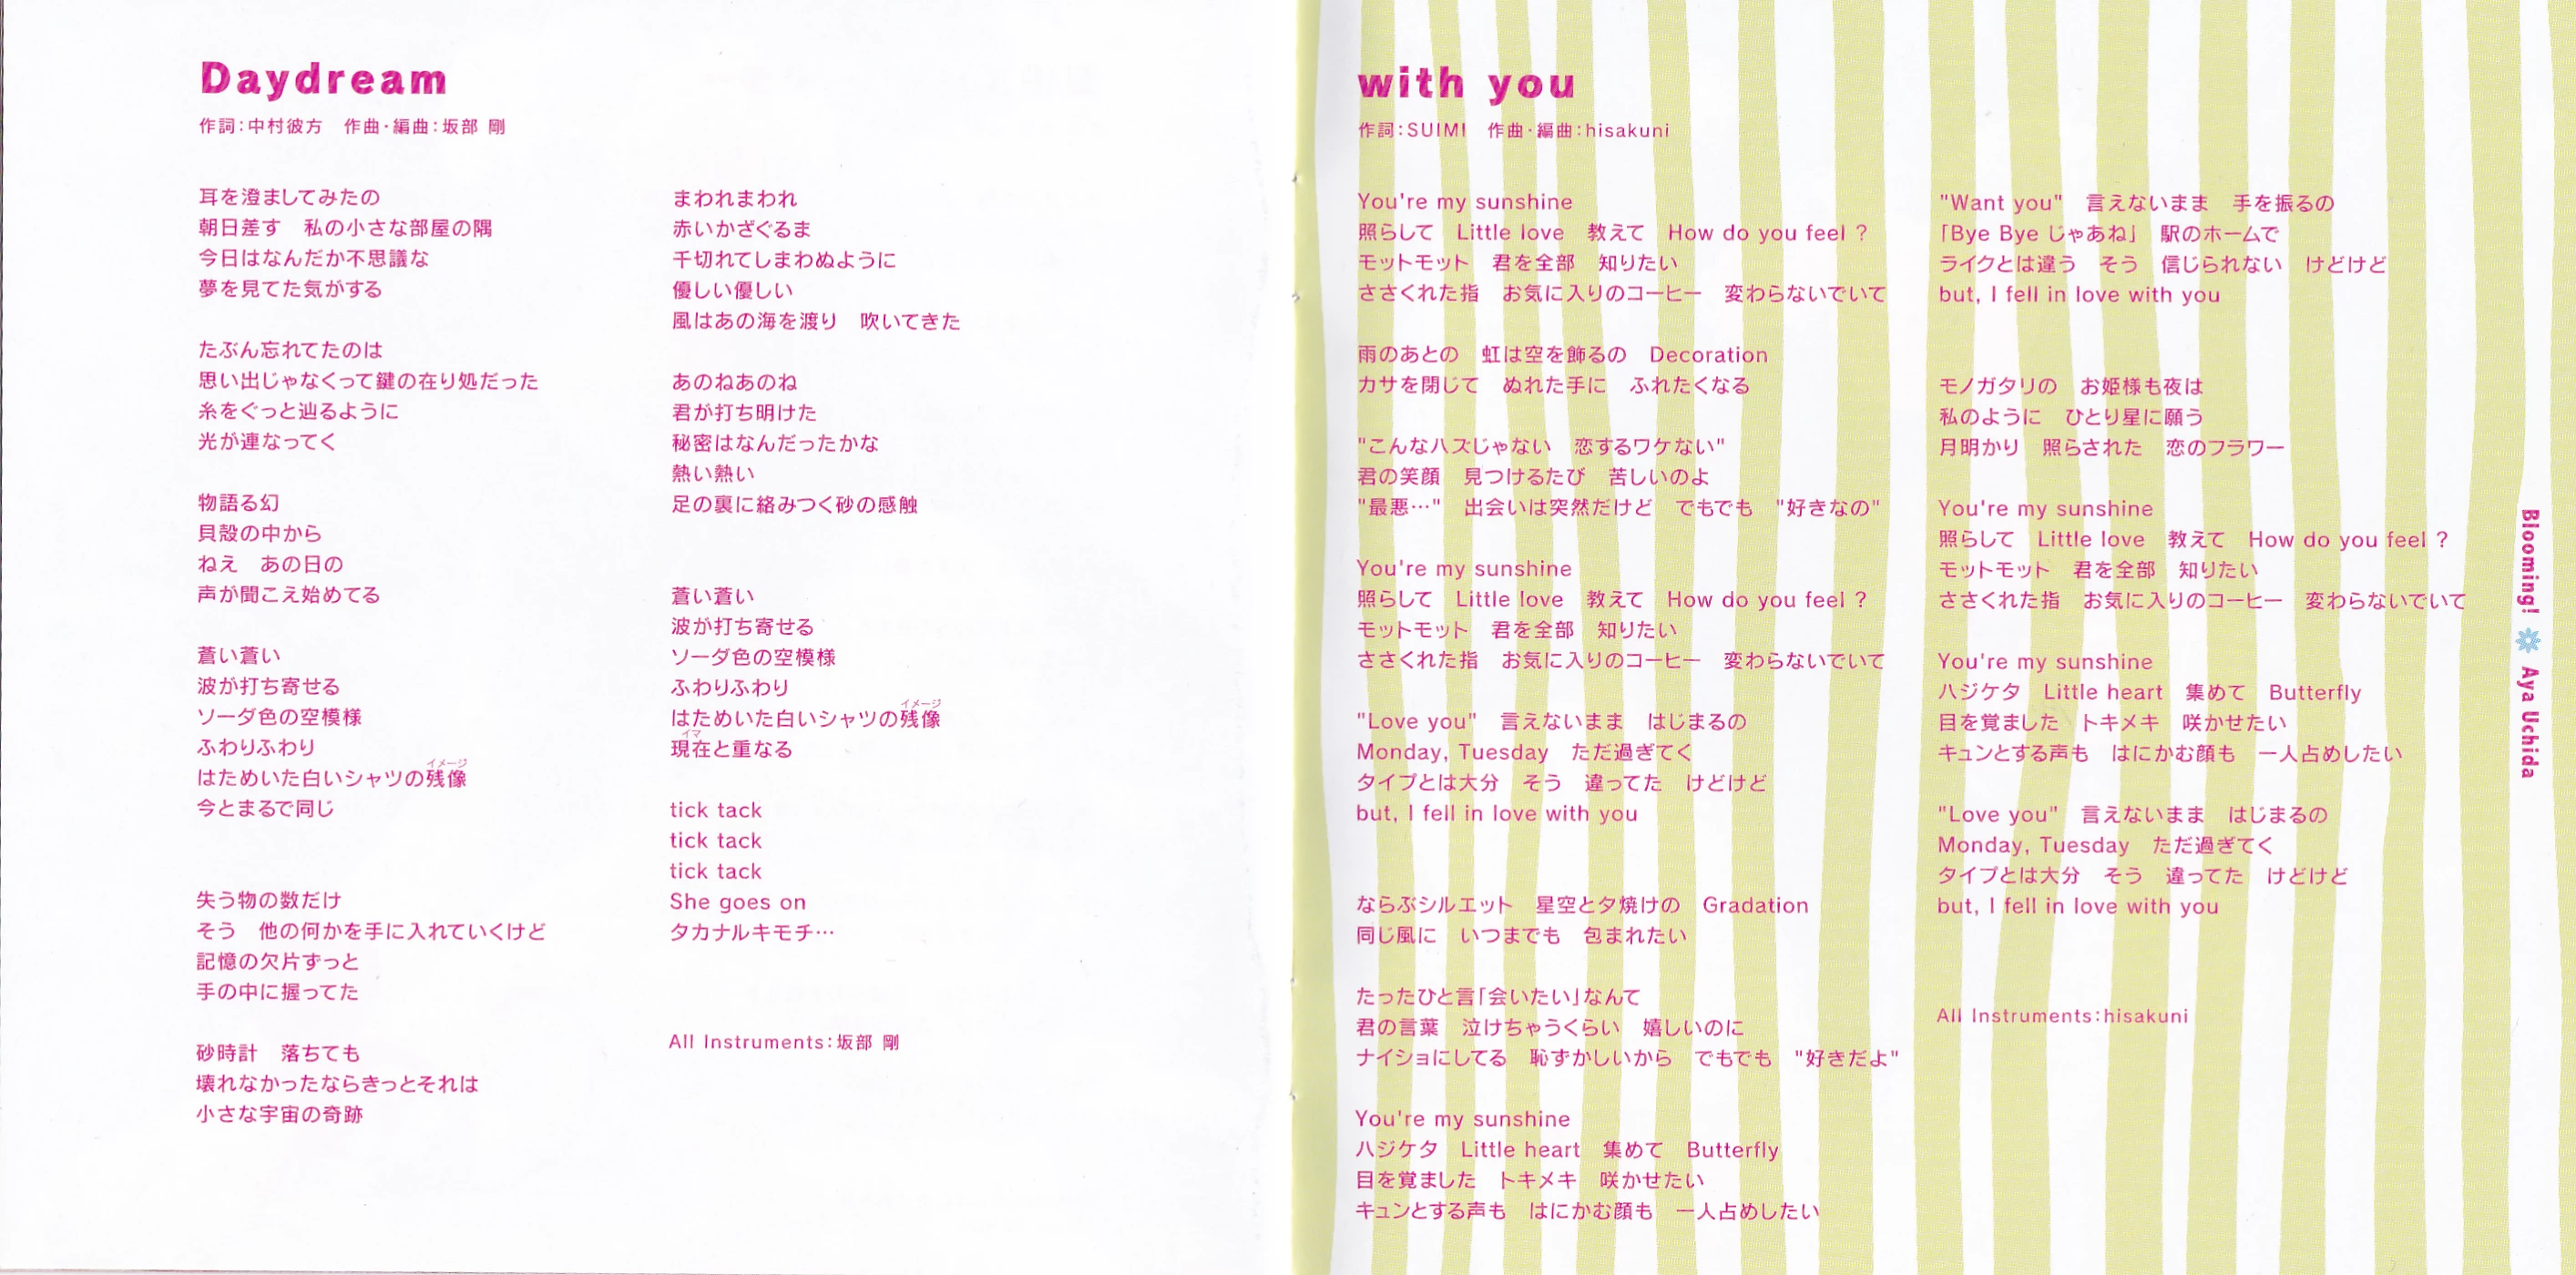 Daydream
作詞:中村彼方　作曲・編曲:坂部 剛
耳を澄ましてみたの
朝日差す　私の小さな部屋の隅
今日はなんだか不思議な
夢を見てた気がする
たぶん忘れてたのは
思い出じゃなくって鍵の在り処だった
糸をぐっと辿るように
光が連なってく
物語る幻
貝殻の中から
ねえ　あの日の
声が聞こえ始めてる
蒼い蒼い
波が打ち寄せる
ソーダ色の空模様
ふわりふわり
イメージ
はためいた白いシャツの残像
今とまるで同じ
失う物の数だけ
そう　他の何かを手に入れていくけど
記憶の欠片ずっと
手の中に握ってた
砂時計　落ちても
壊れなかったならきっとそれは
小さな宇宙の奇跡
まわれまわれ
赤いかざぐるま
千切れてしまわぬように
優しい優しい
風はあの海を渡り　吹いてきた
あのねあのね
君が打ち明けた
秘密はなんだったかな
熱い熱い
足の裏に絡みつく砂の感触
蒼い蒼い
波が打ち寄せる
ソーダ色の空模様
ふわりふわり
イメージ
はためいた白いシャツの残像
イマ
現在と重なる
tick tack
tick tack
tick tack
She goes on
タカナルキモチ…
All Instruments:坂部 剛
with you
作詞:SUIMI　作曲・編曲:hisakuni
You're my sunshine
照らして　Little love　教えて　How do you feel ?
モットモット　君を全部　知りたい
ささくれた指　お気に入りのコーヒー　変わらないでいて
雨のあとの　虹は空を飾るの　Decoration
カサを閉じて　ぬれた手に　ふれたくなる
"こんなハズじゃない　恋するワケない"
君の笑顔　見つけるたび　苦しいのよ
"最悪…"　出会いは突然だけど　でもでも　"好きなの"
You're my sunshine
照らして　Little love　教えて　How do you feel ?
モットモット　君を全部　知りたい
ささくれた指　お気に入りのコーヒー　変わらないでいて
"Love you"　言えないまま　はじまるの
Monday, Tuesday　ただ過ぎてく
タイプとは大分　そう　違ってた　けどけど
but, I fell in love with you
ならぶシルエット　星空と夕焼けの　Gradation
同じ風に　いつまでも　包まれたい
たったひと言「会いたい」なんて
君の言葉　泣けちゃうくらい　嬉しいのに
ナイショにしてる　恥ずかしいから　でもでも　"好きだよ"
You're my sunshine
ハジケタ　Little heart　集めて　Butterfly
目を覚ました　トキメキ　咲かせたい
キュンとする声も　はにかむ顔も　一人占めしたい
"Want you"　言えないまま　手を振るの
「Bye Bye じゃあね」　駅のホームで
ライクとは違う　そう　信じられない　けどけど
but, I fell in love with you
モノガタリの　お姫様も夜は
私のように　ひとり星に願う
月明かり　照らされた　恋のフラワー
You're my sunshine
照らして　Little love　教えて　How do you feel ?
モットモット　君を全部　知りたい
ささくれた指　お気に入りのコーヒー　変わらないでいて
You're my sunshine
ハジケタ　Little heart　集めて　Butterfly
目を覚ました　トキメキ　咲かせたい
キュンとする声も　はにかむ顔も　一人占めしたい
"Love you"　言えないまま　はじまるの
Monday, Tuesday　ただ過ぎてく
タイプとは大分　そう　違ってた　けどけど
but, I fell in love with you
All Instruments:hisakuni
Blooming! Aya Uchida